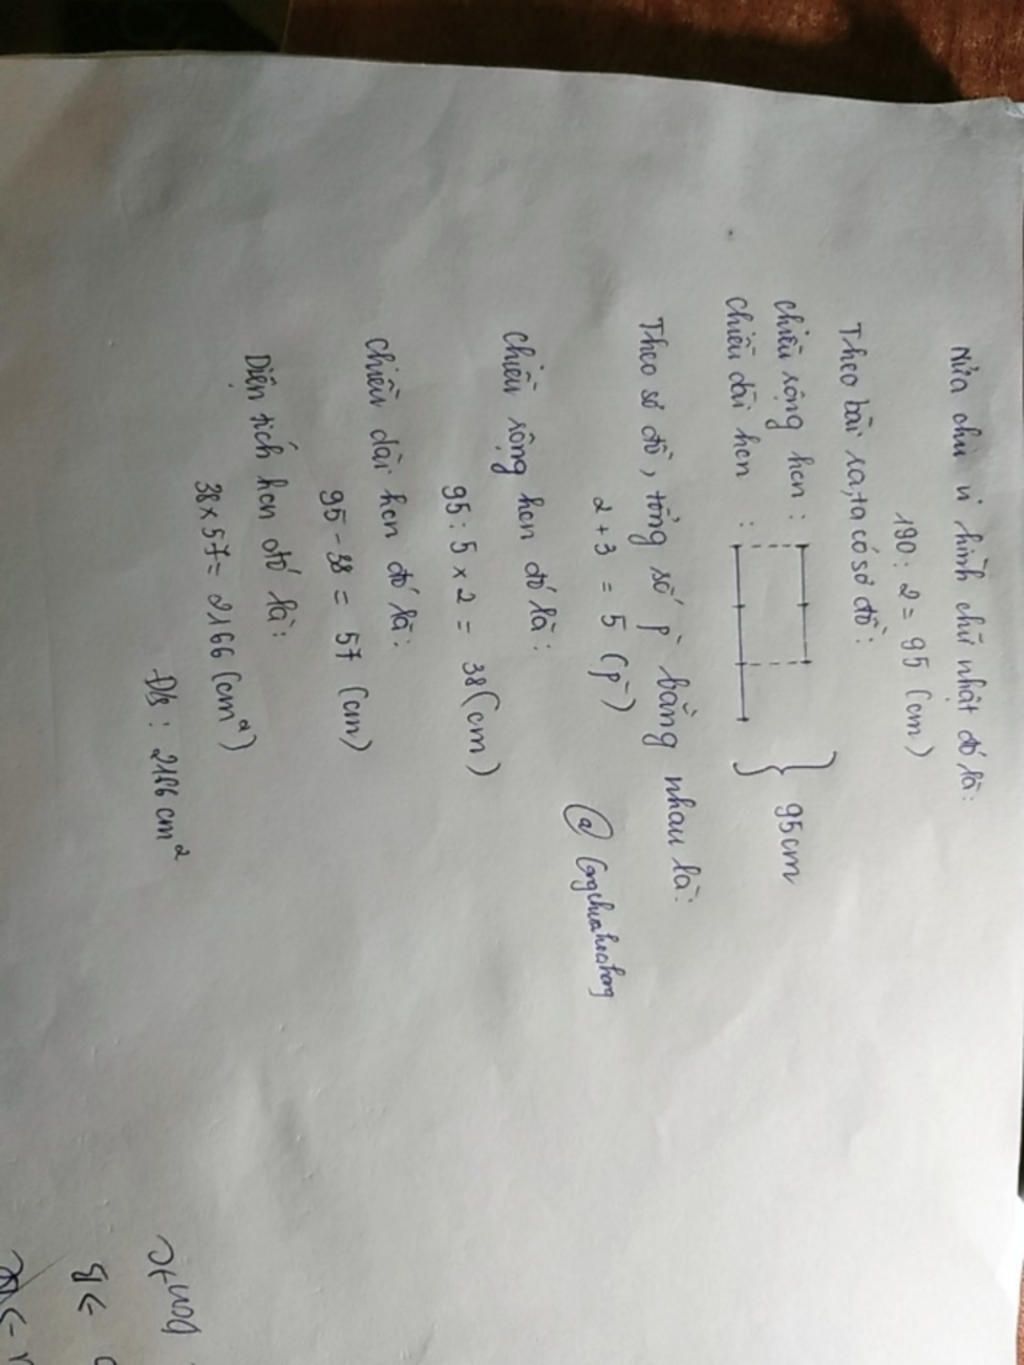 Nửa chu vi hình chữ nhật đó là:
190 : 2 = 95 (cm)
Theo bài ra, ta có sơ đồ:
chiều rộng hcn :
chiều dài hcn :
95cm
Theo sơ đồ, tổng số p bằng nhau là:
2 + 3 = 5 (p)
@ Congchuahoahong
chiều rộng hcn đó là:
95 : 5 × 2 = 38 (cm)
chiều dài hcn đó là:
95 - 38 = 57 (cm)
Diện tích hcn đó là:
38 × 57 = 2166 (cm²)
Đ/s : 2166 cm²